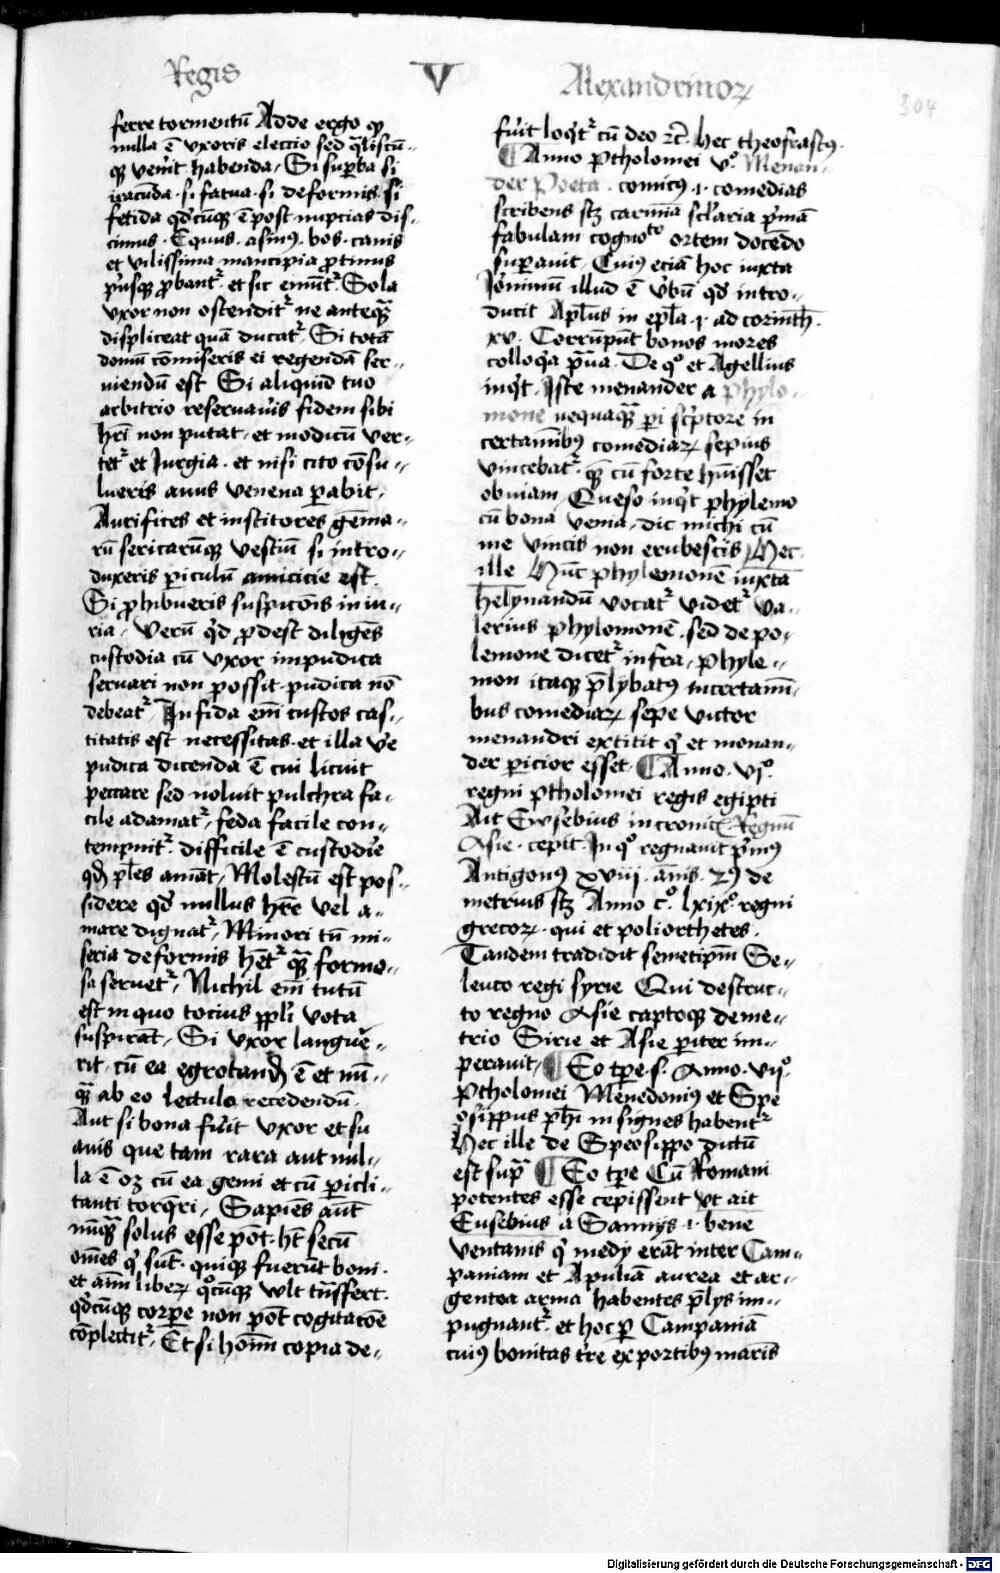 Regis V Alexandrinoꝝ
304
ferre tormentū Adde ergo ꝙ
nulla ē vxoris eleccio sed q̄liscū-
qꝫ veīt habenda / Si suꝑba si
iracūda · si fatua · si deformis · si
fetida qd̄cūqꝫ ē post nupcias dis-
cimus · Equus · asinꝰ · bos · canis
et vilissima mancipia ꝓtinus
pꝰusqꝫ ꝓbant᷑ · et sic emūt᷑ · Sola
vxor non ostendit᷑ ne anteqꝫ̄
displiceat quā ducat᷑ / Si totā
domū cōmiseris ei regendā ser-
uiendū est Si aliquid tuo
arbitrio reseruaūis fidem sibi
hr̄i non putat · et modicū ver-
tet᷑ et Jurgia · et nisi cito cōsu-
lueris anus venena ꝑabit /
Aurifices et institores gēma-
rū sericarūqꝫ vestiū si intro-
duxeris ꝑiculū amicicie est
Si ꝓhibueris suspicōis iniu-
ria / Verū qd̓ ꝓdest diligēs
custodia cū vxor impudica
seruari non possit · pudica nō
debeat᷑ / Infida em̄ custos cas-
titatis est necessitas · et illa v̓e
pudica dicenda ē cui licuit
peccare sed noluit pulchra fa-
cile adamat᷑ / feda facile con-
tempnit᷑ · difficile ē custodir̄e
qd̄ pl̄es amāt / Molestū est pos-
sidere qd̓ nullus hr̄e vel a-
mare dignat᷑ / Minori tn̄ mi-
seria deformis hēt᷑ qꝫ̄ formo-
sa seruet᷑ / Nichil em̄ tutū
est in quo tocius ppl̓i vota
suspirāt / Si vxor languē-
rit · cū ea egrotand̄ ē et nū-
qꝫ̄ ab eo lectulo recedendū
Aut si bona fūit vxor et su
auis que tam rara aut nul-
la ē oꝫ cū ea gemi et cū ꝑicli-
tanti torq̄ri / Sapiēs aūt
nūqꝫ̄ solus esse pōt · hꝫ secū
om̄es q̓ sūt · quiqꝫ fuerūt boni ·
et aīm liberꝝ qͦcūqꝫ vlt tn̄sfert ·
qd̓cūqꝫ corꝑe non pōt cogitacōe
cōplectit᷑ / Et si hoīm copia de-
fūit loq̓t᷑ cū deo ꝛc̄ · hec theofrastꝰ
¶ Anno ptholomei vͦ · Menan-
der Poeta · comicꝰ ·i· comedias
scribens stꝫ carmīa scl̓aria p̓mā
fabulam cognoᵗᵒ ortem docēdo
suꝑauit / Cuiꝰ eciā hoc iuxta
Jeronimū illud ē v̓bū qd̓ intro-
ducit apl̄us in epl̄a ·i· ad corinth̄ ·
xv · Corrūpūt bonos mores
colloq̓a praua · De qͦ et Agellius
inq̓t · Iste menander a phylo-
mone nequaqꝫ̄ pi sc̓ptore in
certamībꝰ comediaꝝ sepius
vincebat᷑ · qꝫ̄ cū forte hūisset
obuiam Queso inq̓t phylemo
cū bona venia · dic michi cū
me vincis non erubescis / Hec
ille Hūc phylemonē iuxta
helynandū vocat᷑ videt᷑ va-
lerius phylomonē · sed de po-
lemone dicet᷑ infra / Phyle-
mon itaqꝫ p̄lybatꝰ in certamī-
bus comediaꝝ sepe victor
menandri extitit q̓ et monan-
der ꝑicior esset ¶ Anno · vjͦ ·
regni ptholomei regis egipti
Ait Ewsebius in cronic̄ Regnū
Asie · cepit · In qͦ regnauit p̓mꝰ
Antigonꝰ xviij · annis · 2ꝰ de
metrius stꝫ Anno cͦ · lxixͦ · regni
grecoꝝ · qui et poliorthetes ·
Tandem tradidit semetip̄m Se-
leuco regi syrie Qui destruc-
to regno Asie captoqꝫ deme-
trio Sirie et Asie ꝑiter im-
ꝑerauit / ¶ Eo tꝑe · s · Anno · vijͦ ·
Ptholomei Menedoniꝰ et Spe
osippus ph̄i insignes habent᷑
Hec ille de Speosippo dictū
est sup̄ ¶ Eo tꝑe Cū Romani
potentes esse cepissent vt ait
Eusebius a Sannijs ·i· bene
ventanis q̓ medij erāt inter Cam-
paniam et Apuliā aurea et ar-
gentea arma habentes p̄lijs im-
pugnant᷑ · et hoc ꝑ Campaniā
cuiꝰ bonitas tr̓e ex portibꝰ maris
Digitalisierung gefördert durch die Deutsche Forschungsgemeinschaft - DFG